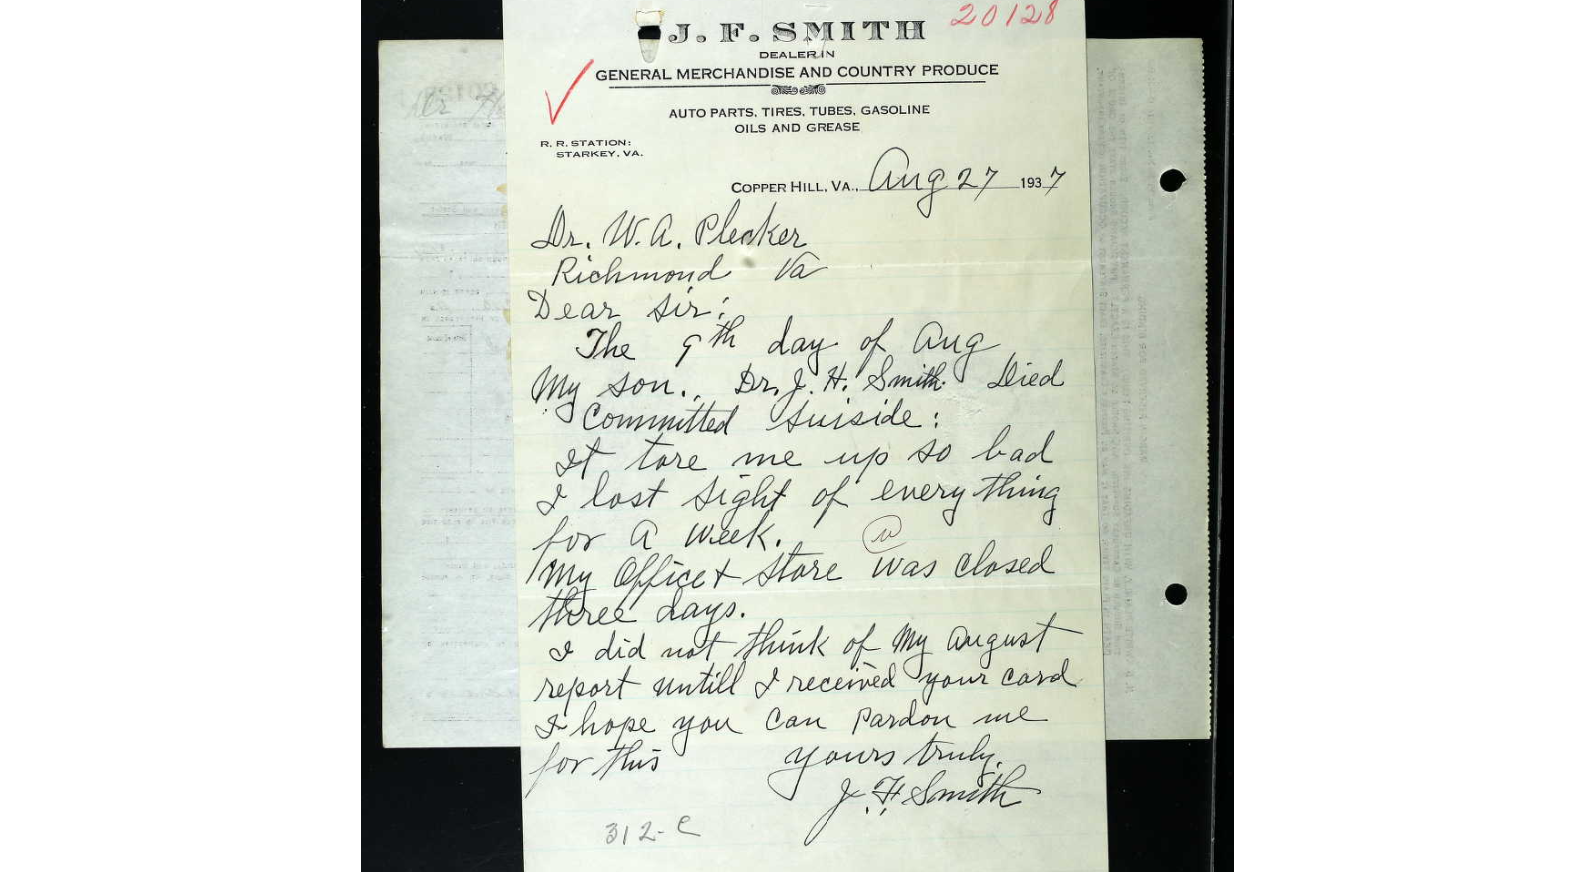 20128
J. F. SMITH
DEALER IN
GENERAL MERCHANDISE AND COUNTRY PRODUCE
AUTO PARTS, TIRES, TUBES, GASOLINE
OILS AND GREASE
R. R. STATION:
STARKEY, VA.
COPPER HILL, VA., Aug 27 1937
Dr. W. A. Plecker
Richmond Va
Dear Sir:
The 9th day of Aug
My son., Dr. J. H. Smith Died
Committed Suiside:
It tore me up so bad
I lost sight of everything
for A week.
My Office & Store was closed
three days.
I did not think of My August
report untill I received your card
I hope you can pardon me
for this yours truly,
J. F. Smith
312-C